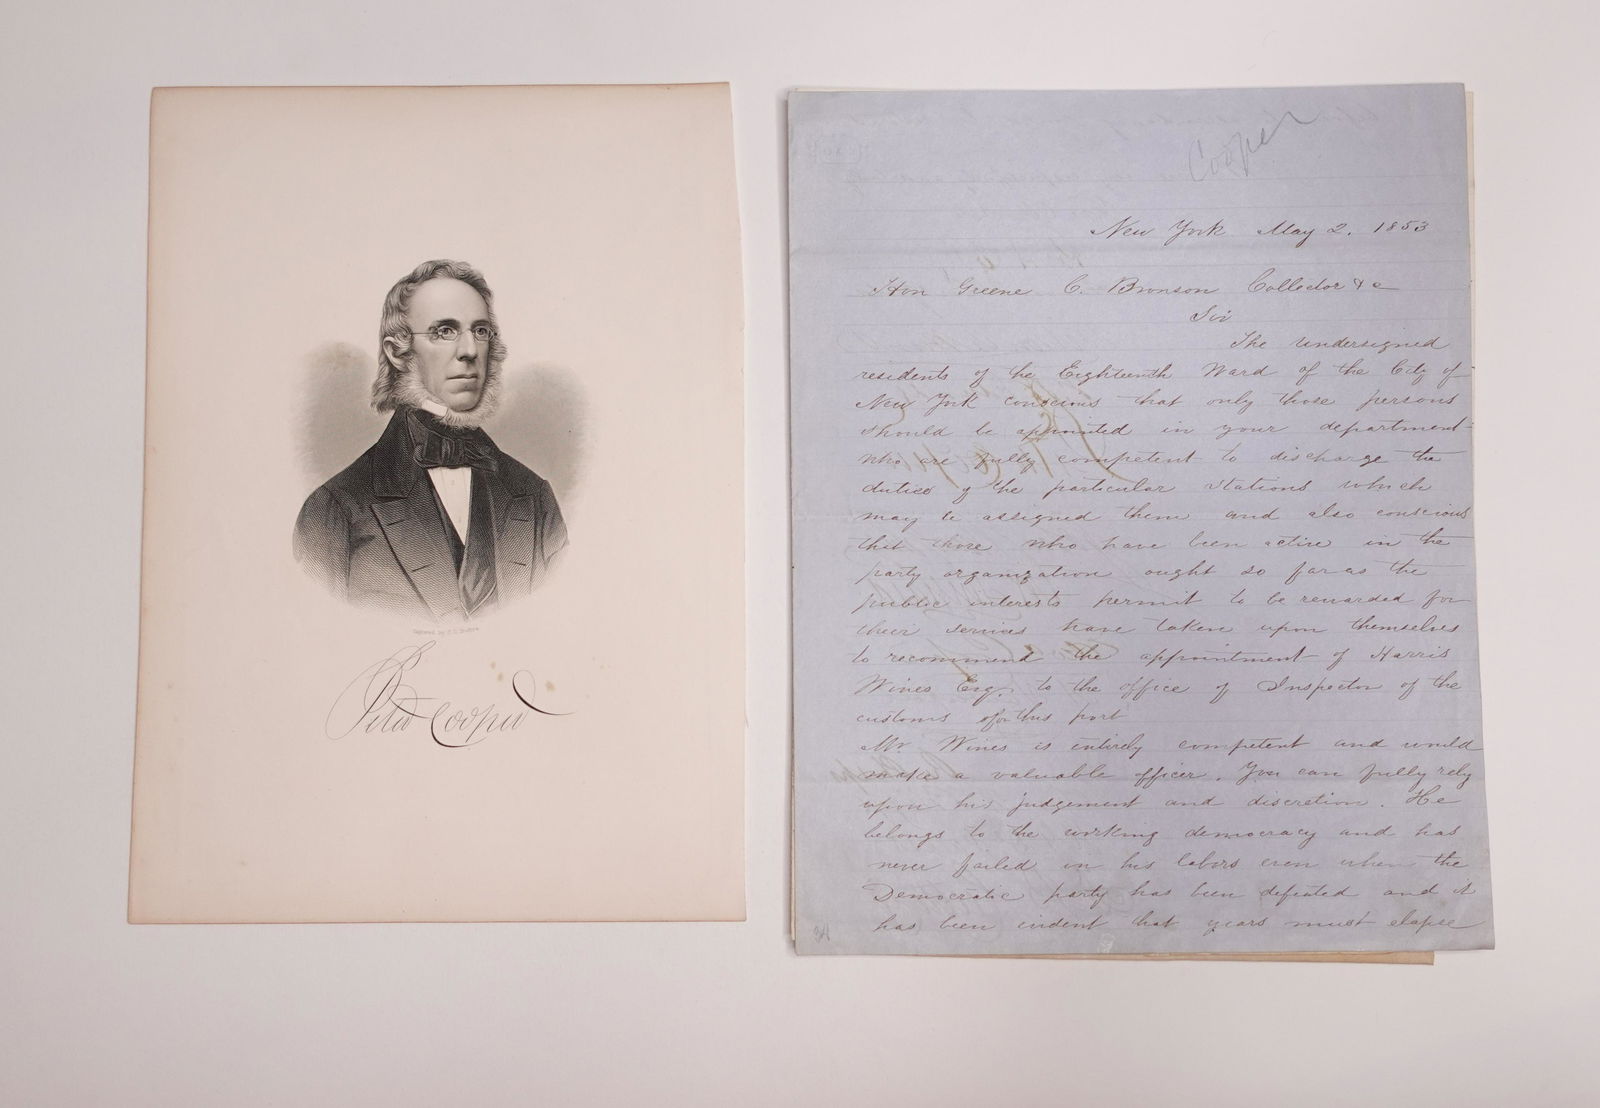 Peter Cooper
Cooper
New York May 2. 1853
Hon Greene C. Bronson Collector &c
Sir
The undersigned
residents of the Eighteenth Ward of the City of
New York conscious that only those persons
should be appointed in your department
who are fully competent to discharge the
duties of the particular stations which
may be assigned them and also conscious
that those who have been active in the
party organization ought so far as the
public interests permit to be rewarded for
their services have taken upon themselves
to recommend the appointment of Harris
Wines Esq. to the office of Inspector of the
customs for this port
Mr. Wines is entirely competent and would
make a valuable officer. You can fully rely
upon his judgement and discretion. He
belongs to the working democracy and has
never failed in his labors even when the
Democratic party has been defeated and it
has been evident that years must elapse